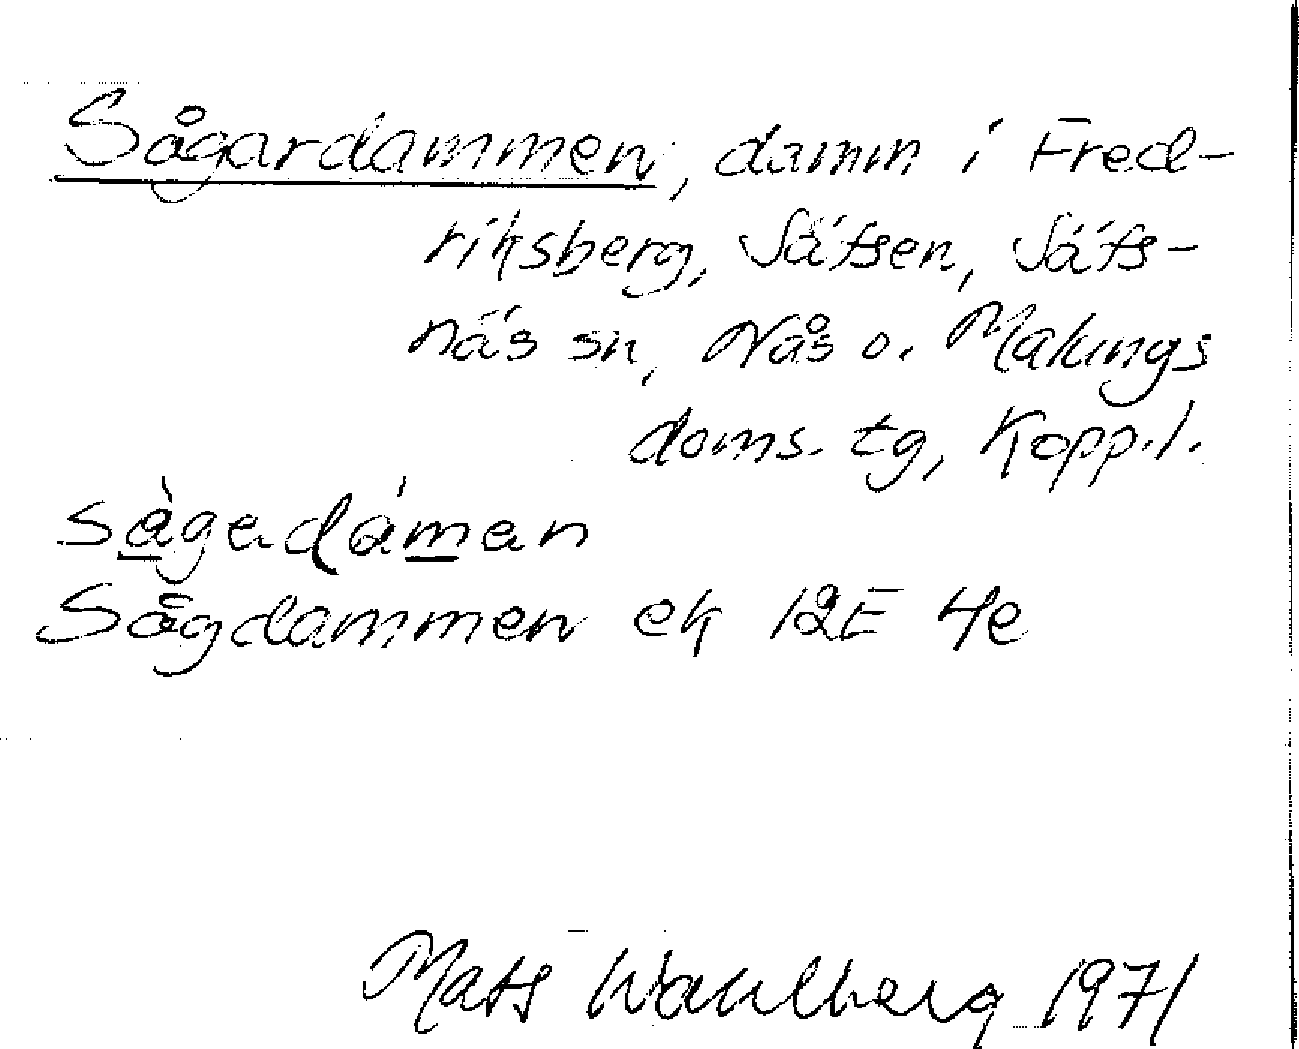 Sågardammen, damm i Fred-
riksberg, Säfsen, Säfs-
näs sn, Nås o. Malungs
doms. tg, Kopp. l.
sàgadáman
Sågdammen ek 12E 4e
Mats Wahlberg 1971